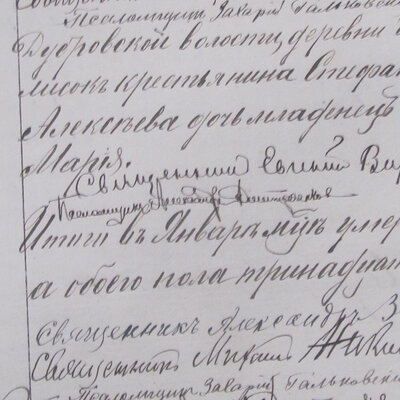 Псаломщикъ Захарій Гальковскі
Дубровской волости, деревни
лисокъ крестьянина Стефа
Алексѣева дочь младенецъ
Марія.
Священникъ Евгеній
Псаломщикъ Александр
Итого въ Январѣ мцѣ умер
а обоего пола тринадцат
Священникъ Александръ З
Священникъ Михаил
Псаломщик Захарій Гальковскі